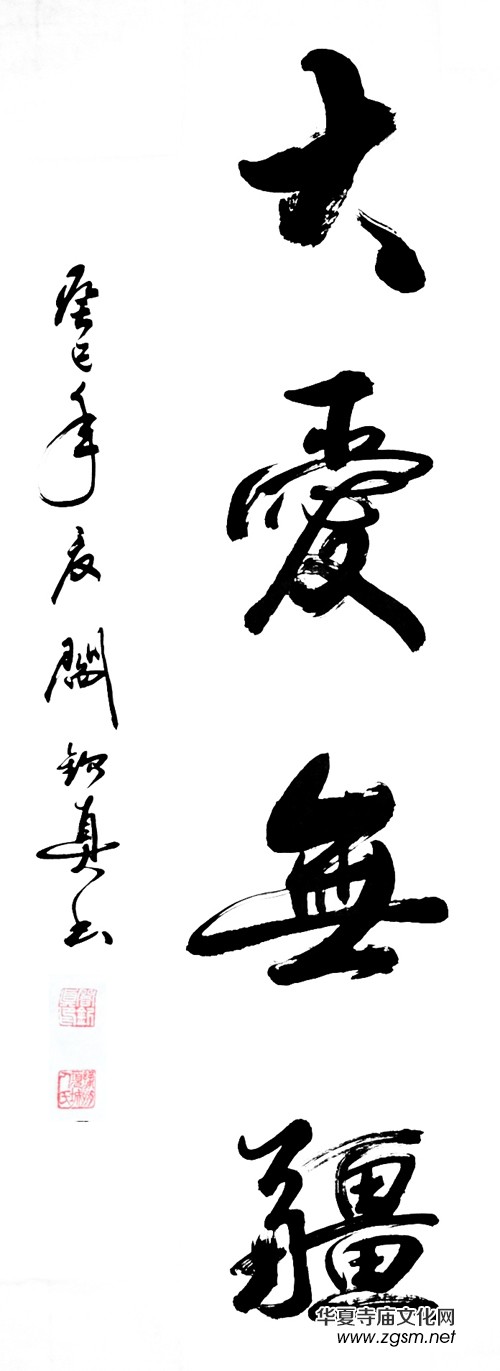 大愛無疆
癸巳年夏關真书
华夏寺庙文化网
www.zgsm.net